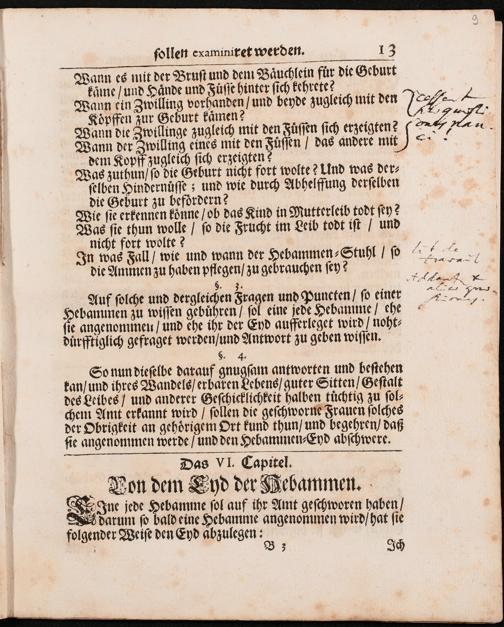 9
sollen examiniret werden. 13
Wann es mit der Brust und dem Bäuchlein für die Geburt
käme/ und Hände und Füsse hinter sich kehrete?
Wann ein Zwilling vorhanden/ und beyde zugleich mit den
Köpffen zur Geburt kämen?
Wann die Zwillinge zugleich mit den Füssen sich erzeigten?
Wann der Zwilling eines mit den Füssen / das andere mit
dem Kopff zugleich sich erzeigten?
Was zuthun/ so die Geburt nicht fort wolte? Und was der-
selben Hindernüsse; und wie durch Abhelffung derselben
die Geburt zu befördern?
Wie sie erkennen könne/ ob das Kind in Mutterleib todt sey?
Was sie thun wolle / so die Frucht im Leib todt ist / und
nicht fort wolte?
In was Fall/ wie und wann der Hebammen-Stuhl / so
die Ammen zu haben pflegen/ zu gebrauchen sey?
§. 3.
Auf solche und dergleichen Fragen und Puncten/ so einer
Hebammen zu wissen gebühren/ sol eine jede Hebamme/ ehe
sie angenommen/ und ehe ihr der Eyd aufferleget wird/ noht-
dürfftiglich gefraget werden/ und Antwort zu geben wissen.
§. 4.
So nun dieselbe darauf gnugsam antworten und bestehen
kan/ und ihres Wandels/ erbaren Lebens/ guter Sitten/ Gestalt
des Leibes/ und anderer Geschicklichkeit halben tüchtig zu sol-
chem Amt erkannt wird / sollen die geschworne Frauen solches
der Obrigkeit an gehörigem Ort kund thun/ und begehren/ daß
sie angenommen werde/ und den Hebammen-Eyd abschwere.
Das VI. Capitel.
Von dem Eyd der Hebammen.
Eine jede Hebamme sol auf ihr Amt geschworen haben/
darum so bald eine Hebamme angenommen wird/ hat sie
folgender Weise den Eyd abzulegen:
B 3 Ich